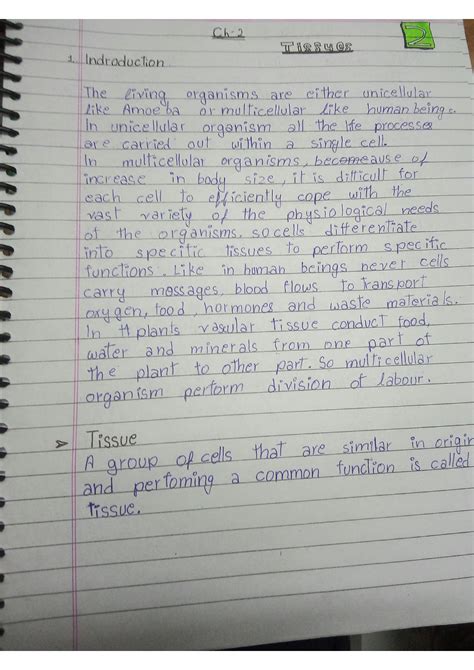 Ch-2
2
Tissues
1 Indroduction
The living organisms are either unicellular
like Amoeba or multicellular like human beings.
In unicellular organism all the life processes
are carried out within a single cell.
In multicellular organisms, becomeause of
increase in body size, it is difficult for
each cell to efficiently cope with the
vast variety of the physiological needs
of the organisms, so cells differentiate
into specific tissues to perform specific
functions. Like in human beings never cells
carry messages, blood flows to transport
oxygen, food, hormones and waste materials.
In plants vasular tissue conduct food,
water and minerals from one part of
the plant to other part. So multicellular
organism perform division of labour.
➤ Tissue
A group of cells that are similar in origin
and perfoming a common function is called
tissue.